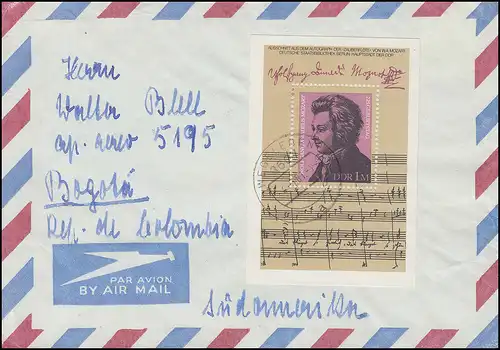 Herrn
Walter Blell
ap. aereo 5195
Bogotá
Rep. de Colombia
PAR AVION
BY AIR MAIL
Südamerika
AUSSCHNITT AUS DEM AUTOGRAPH DER »ZAUBERFLÖTE« VON W.A. MOZART
DEUTSCHE STAATSBIBLIOTHEK BERLIN HAUPTSTADT DER DDR
Wolfgang Amadé Mozart
DDR 1M